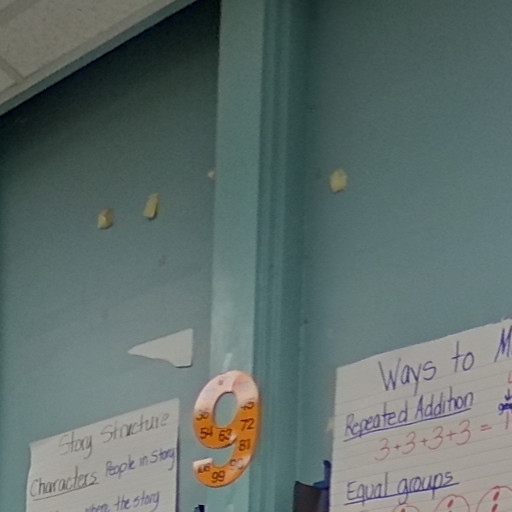 Story Structure
Characters People in Story
the story
9
45
54 63 72
81
99
Ways to
Repeated Addition
3+3+3+3 =
Equal groups